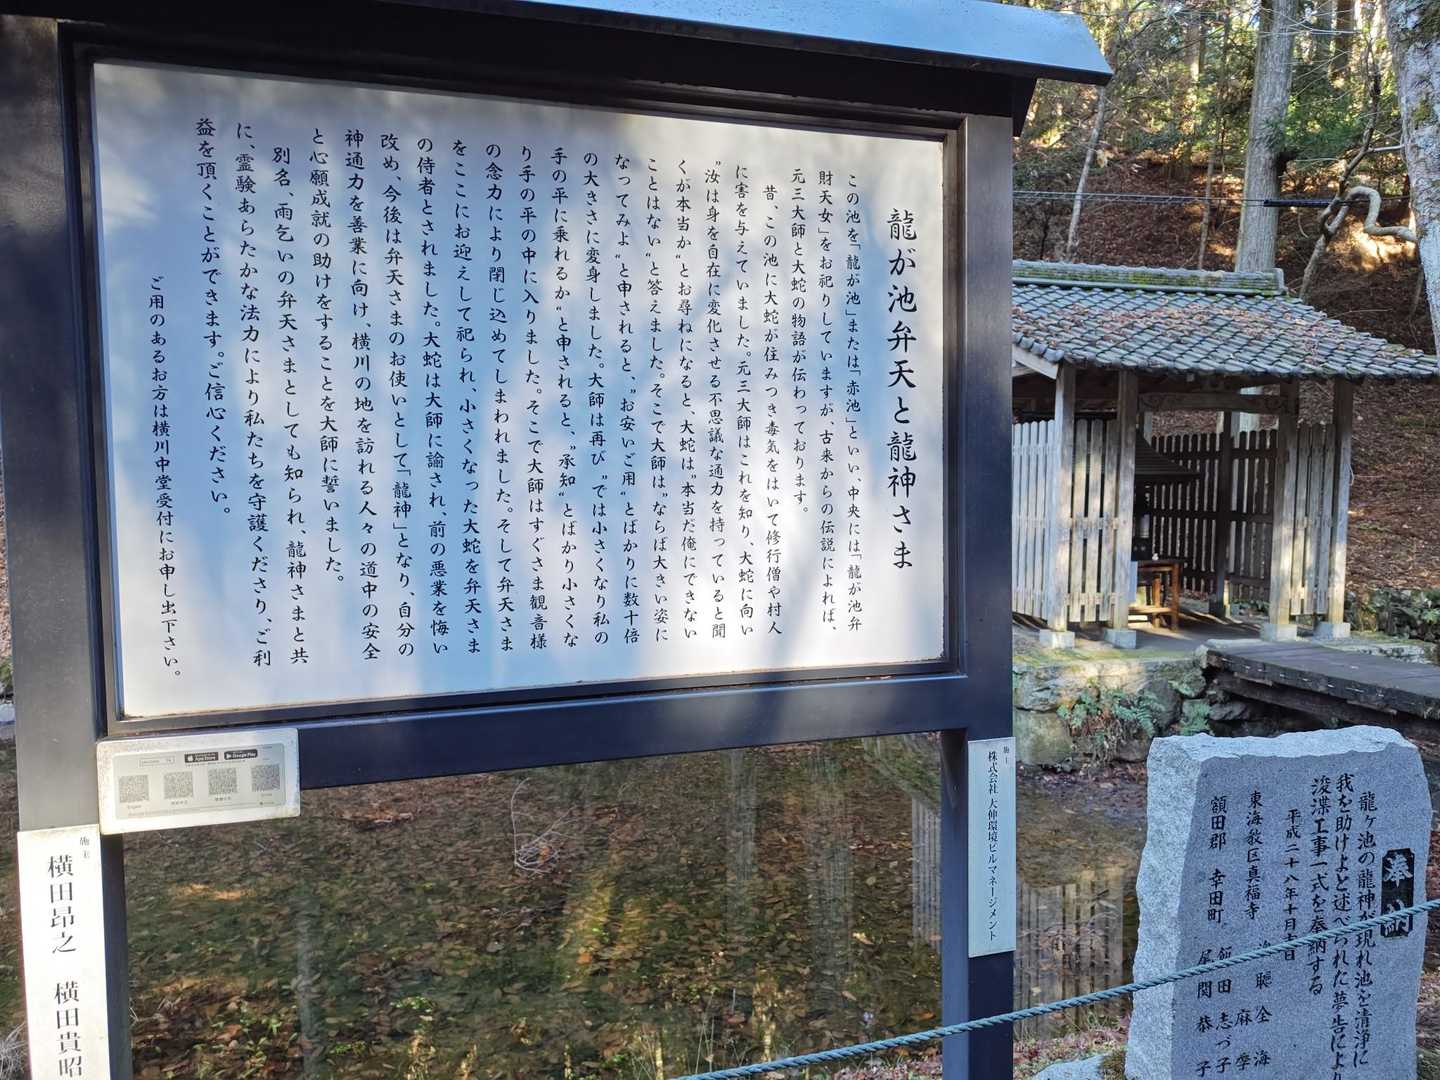 龍が池弁天と龍神さま
この池を「龍が池」または「赤池」といい、中央には「龍が池弁
財天女」をお祀りしていますが、古来からの伝説によれば、
元三大師と大蛇の物語が伝わっております。
昔、この池に大蛇が住みつき毒気をはいて修行僧や村人
に害を与えていました。元三大師はこれを知り、大蛇に向い
"汝は身を自在に変化させる不思議な通力を持っていると聞
くが本当か"とお尋ねになると、大蛇は"本当だ俺にできない
ことはない"と答えました。そこで大師は"ならば大きい姿に
なってみよ"と申されると、"お安いご用"とばかりに数十倍
の大きさに変身しました。大師は再び"では小さくなり私の
手の平に乗れるか"と申されると、"承知"とばかり小さくな
り手の平の中に入りました。そこで大師はすぐさま観音様
の念力により閉じ込めてしまわれました。そして弁天さま
をここにお迎えして祀られ、小さくなった大蛇を弁天さま
の侍者とされました。大蛇は大師に諭され、前の悪業を悔い
改め、今後は弁天さまのお使いとして「龍神」となり、自分の
神通力を善業に向け、横川の地を訪れる人々の道中の安全
と心願成就の助けをすることを大師に誓いました。
別名、雨乞いの弁天さまとしても知られ、龍神さまと共
に、霊験あらたかな法力により私たちを守護くださり、ご利
益を頂くことができます。ご信心ください。
ご用のあるお方は横川中堂受付にお申し出下さい。
App Store
Google Play
施主
横田昂之 横田貴昭
施主
株式会社 大伸環境ビルマネージメント
奉納
龍ヶ池の龍神が現れ池を清浄に
我を助けよと述べられた夢告により
浚渫工事一式を奉納する
平成二十八年十月七日
東海教区真福寺
額田郡 幸田町
飯田 志づ子
尾関 恭子